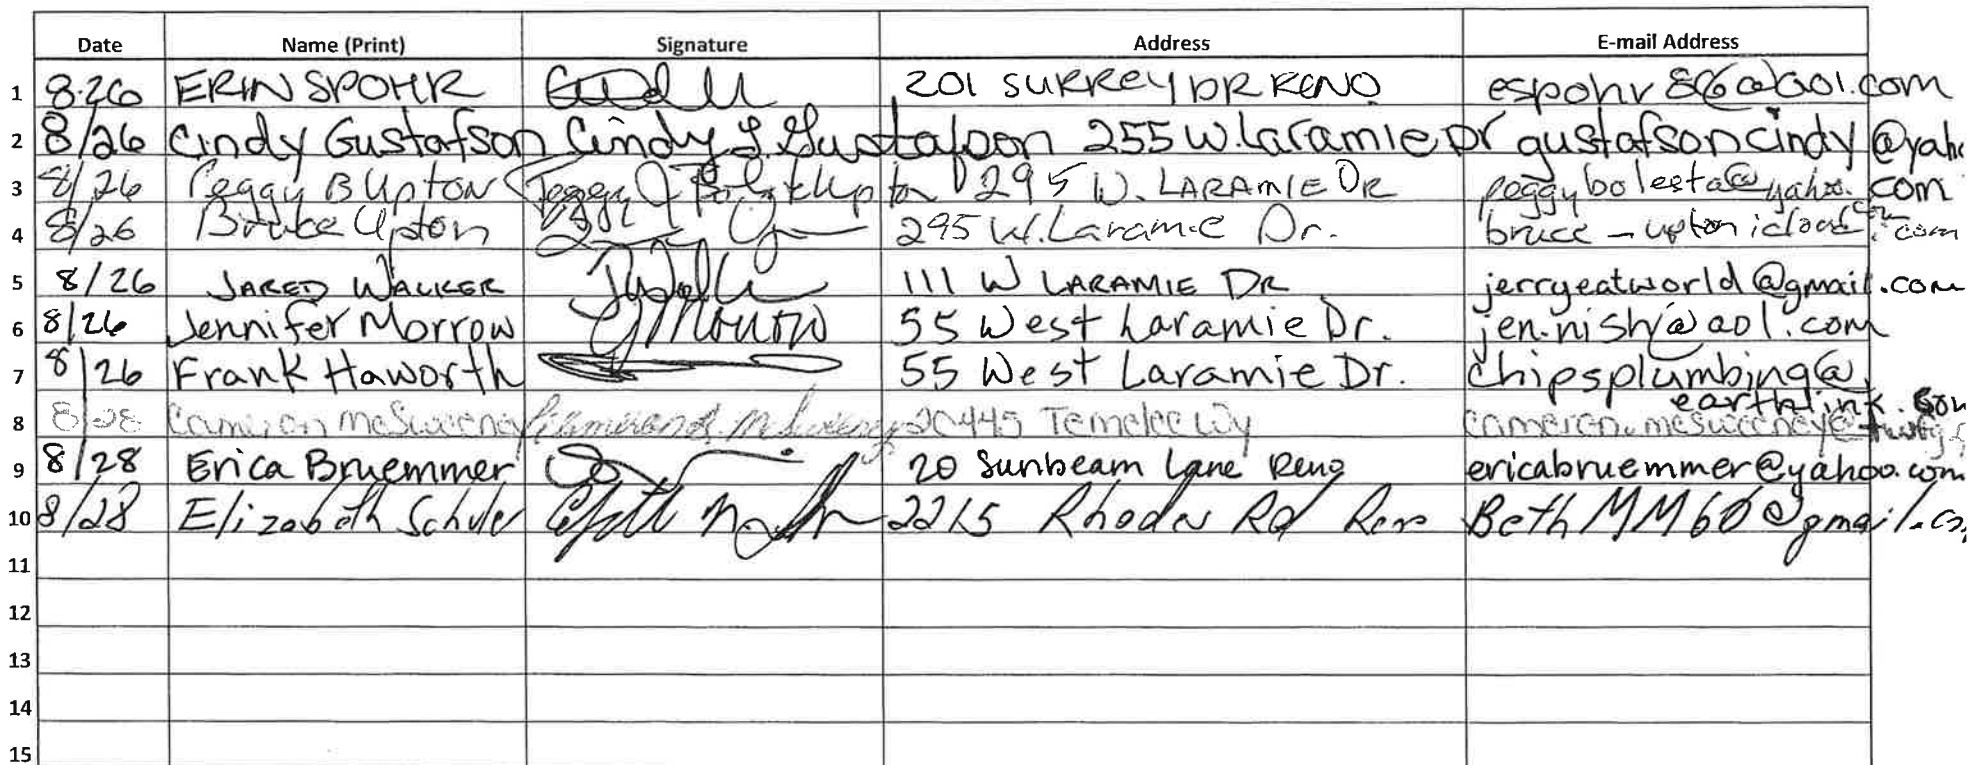 Date Name (Print) Signature Address E-mail Address
1 8.26 ERIN SPOHR 201 SURREY DR RENO espohr86@aol.com
2 8/26 Cindy Gustafson Cindy L. Gustafson 255 W. Laramie Dr gustafsoncindy@yaho
3 8/26 Peggy B Upton Peggy Upton 295 W. LARAMIE DR peggybolesta@yahoo.com
4 8/26 Bruce Upton 295 W. Laramie Dr.
5 8/26 JARED WALKER 111 W LARAMIE DR jerryeatworld@gmail.com
6 8/26 Jennifer Morrow JMorrow 55 West Laramie Dr. jen.nish@aol.com
7 8/26 Frank Haworth 55 West Laramie Dr. chipsplumbing@
earthlink.com
8 8/28 Cameron McSweeney 20445 Temelec Wy cameron.mcsweeney@
9 8/28 Erica Bruemmer 20 Sunbeam Lane Reno ericabruemmer@yahoo.com
10 8/28 Elizabeth Schuler 2215 Rhodes Rd Reno BethMM60@gmail.co
11
12
13
14
15